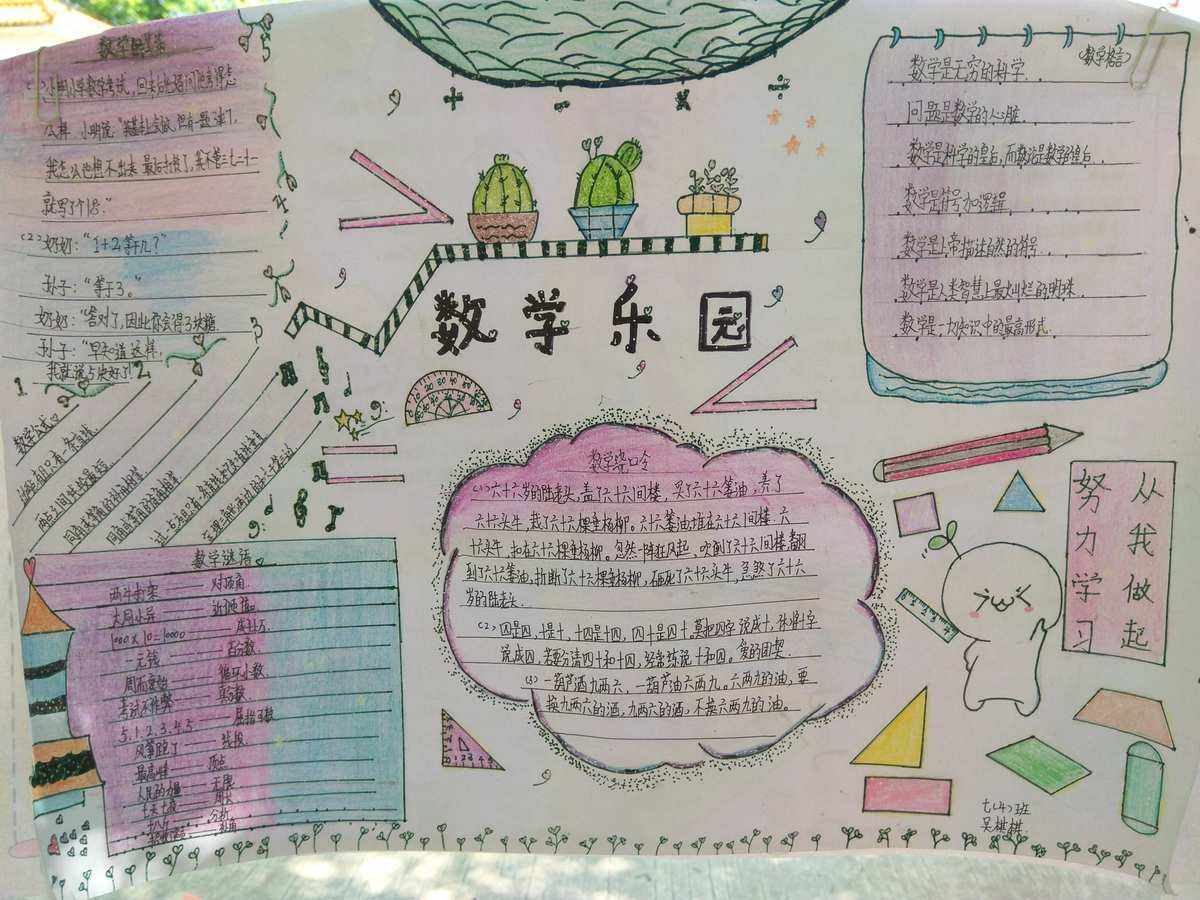 数学
(1)小明小学数学考试,回去后
么样 小明说:
我怎么也想不出来 最后
就写了个18."
(2)奶奶:"1+2等于几?"
孙子:"等于3。"
奶奶:"答对了,因此你会得了3块糖.
孙子:"早知道这样,
我就说5块好了!
5
4
3
2
1
数学公式
两点之间线段最短
同角或等角的补角相等.
同角或等角的余角相等
数学谜语
两牛打架 —— 对顶角
大同小异 —— 近似值
1000×10=10000 —— 成千上万
一元钱 —— 百分数
周而复始 —— 循环小数
考试不作弊 —— 真分数
5.1.2.3.4.5
风筝跑了 —— 线段
最高峰 —— 顶点
人民的力量 —— 无限
七天七夜 —— 周长
数学乐园
数学绕口令
(1)六十六岁的陆老头,盖了六十六间楼,买了六十六篓油,养了
六十六头牛,栽了六十六棵垂杨柳。六十六篓油,堆在六十六间楼.六
十六头牛,扣在六十六棵垂杨柳。忽然一阵狂风起,吹倒了六十六间楼翻
到了六十六篓油,折断了六十六棵垂杨柳,砸死了六十六头牛,急煞了六十六
岁的陆老头.
(2)四是四,十是十,十四是十四,四十是四十,莫把四字说成十,休将十字
说成四,若要分清四十和十四,经常练说十和四。
(3)一葫芦酒九两六,一葫芦油六两九。六两九的油,要
换九两六的酒,九两六的酒,不换六两九的油。
(数学格言)
数学是无穷的科学.
问题是数学的心脏.
数学是科学的皇后,而数论是数学的皇后.
数学是符号加逻辑.
数学是上帝描述自然的符号.
数学是人类智慧上最灿烂的明珠.
数学是一切知识中的最高形式.
从我做起
努力学习
七(4)班